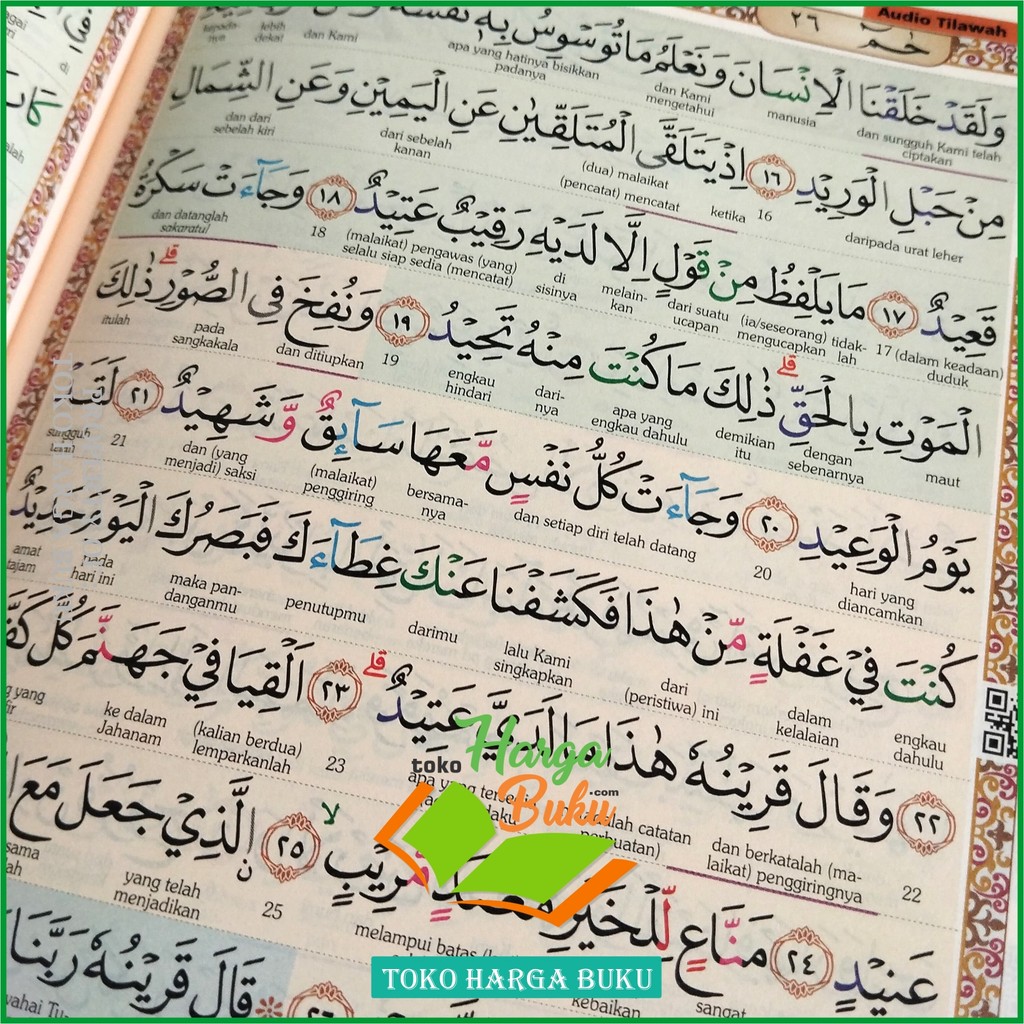 Audio Tilawah
حٰمٓ ٢٦
وَلَقَدْ خَلَقْنَا الْاِنْسَانَ وَنَعْلَمُ مَا تُوَسْوِسُ بِهٖ نَفْسُهٗ
dan sungguh Kami telah ciptakan manusia dan Kami mengetahui apa yang hatinya bisikkan padanya dan Kami lebih dekat
مِنْ حَبْلِ الْوَرِيْدِ ١٦ اِذْ يَتَلَقَّى الْمُتَلَقِّيٰنِ عَنِ الْيَمِيْنِ وَعَنِ الشِّمَالِ
daripada urat leher 16 ketika (pencatat) mencatat (dua) malaikat dari sebelah kanan dan dari sebelah kiri
قَعِيْدٌ ١٧ مَا يَلْفِظُ مِنْ قَوْلٍ اِلَّا لَدَيْهِ رَقِيْبٌ عَتِيْدٌ ١٨ وَجَاۤءَتْ سَكْرَةُ
(dalam keadaan) duduk 17 tidak-lah (ia/seseorang) mengucapkan dari suatu ucapan melain-kan di sisinya (malaikat) pengawas (yang) selalu siap sedia (mencatat) 18 dan datanglah sakaratul
الْمَوْتِ بِالْحَقِّ ۗ ذٰلِكَ مَا كُنْتَ مِنْهُ تَحِيْدُ ١٩ وَنُفِخَ فِى الصُّوْرِ ۗ ذٰلِكَ
maut dengan sebenarnya demikian itu apa yang engkau dahulu dari-nya engkau hindari 19 dan ditiupkan pada sangkakala itulah
يَوْمُ الْوَعِيْدِ ٢٠ وَجَاۤءَتْ كُلُّ نَفْسٍ مَّعَهَا سَاۤىِٕقٌ وَّشَهِيْدٌ ٢١ لَقَدْ
hari yang diancamkan 20 dan setiap diri telah datang bersama-nya (malaikat) penggiring dan (yang menjadi) saksi 21 sungguh
كُنْتَ فِيْ غَفْلَةٍ مِّنْ هٰذَا فَكَشَفْنَا عَنْكَ غِطَاۤءَكَ فَبَصَرُكَ الْيَوْمَ حَدِيْدٌ
engkau dahulu dalam kelalaian dari (peristiwa) ini lalu Kami singkapkan darimu penutupmu maka pan-danganmu pada hari ini amat tajam
٢٢ وَقَالَ قَرِيْنُهٗ هٰذَا مَا لَدَيَّ عَتِيْدٌ ۗ ٢٣ اَلْقِيَا فِيْ جَهَنَّمَ كُلَّ
22 dan berkatalah (ma-laikat) penggiringnya catatan apa yang 23 (kalian berdua) lemparkanlah ke dalam Jahanam yang
عَنِيْدٍ ٢٤ مَنَّاعٍ لِّلْخَيْرِ مُعْتَدٍ مُّرِيْبٍ ۙ ٢٥ الَّذِيْ جَعَلَ مَعَ
sangat kebaikan melampui batas 25 yang telah menjadikan
قَالَ قَرِيْنُهٗ رَبَّنَا
toko Harga Buku .com
TOKO HARGA BUKU